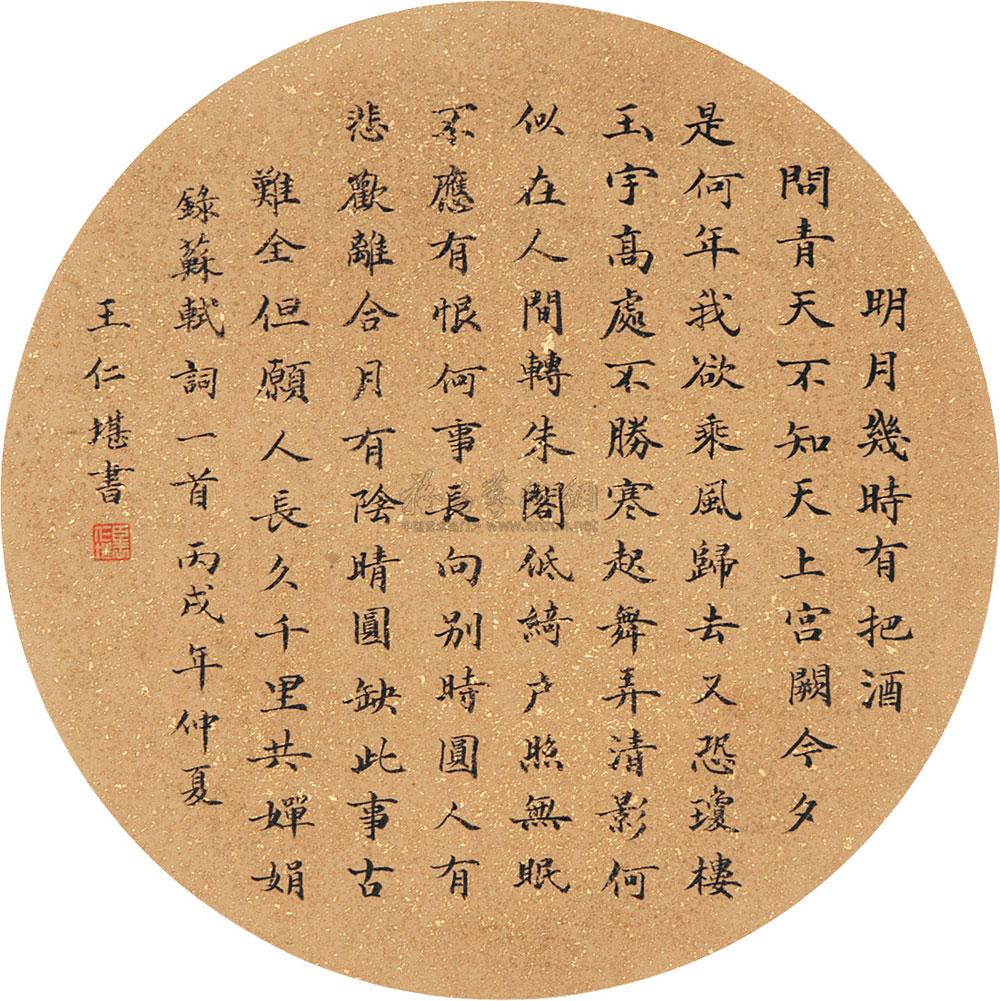 明月幾時有把酒
問青天不知天上宮闕今夕
是何年我欲乘風歸去又恐瓊樓
玉宇高處不勝寒起舞弄清影何
似在人間轉朱閣低綺戶照無眠
不應有恨何事長向别時圓人有
悲歡離合月有陰晴圓缺此事古
難全但願人長久千里共嬋娟
錄蘇軾詞一首丙戌年仲夏
王仁堪書